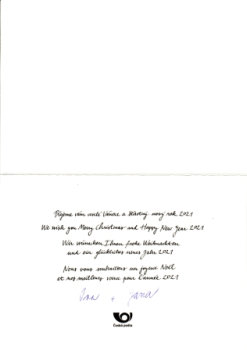 Přejeme vám veselé Vánoce a šťastný nový rok 2021
We wish you Merry Christmas and Happy New Year 2021
Wir wünschen Ihnen frohe Weihnachten
und ein glückliches neues Jahr 2021
Nous vous souhaitons un joyeux Noël
et nos meilleurs vœux pour l'année 2021
+
Česká pošta